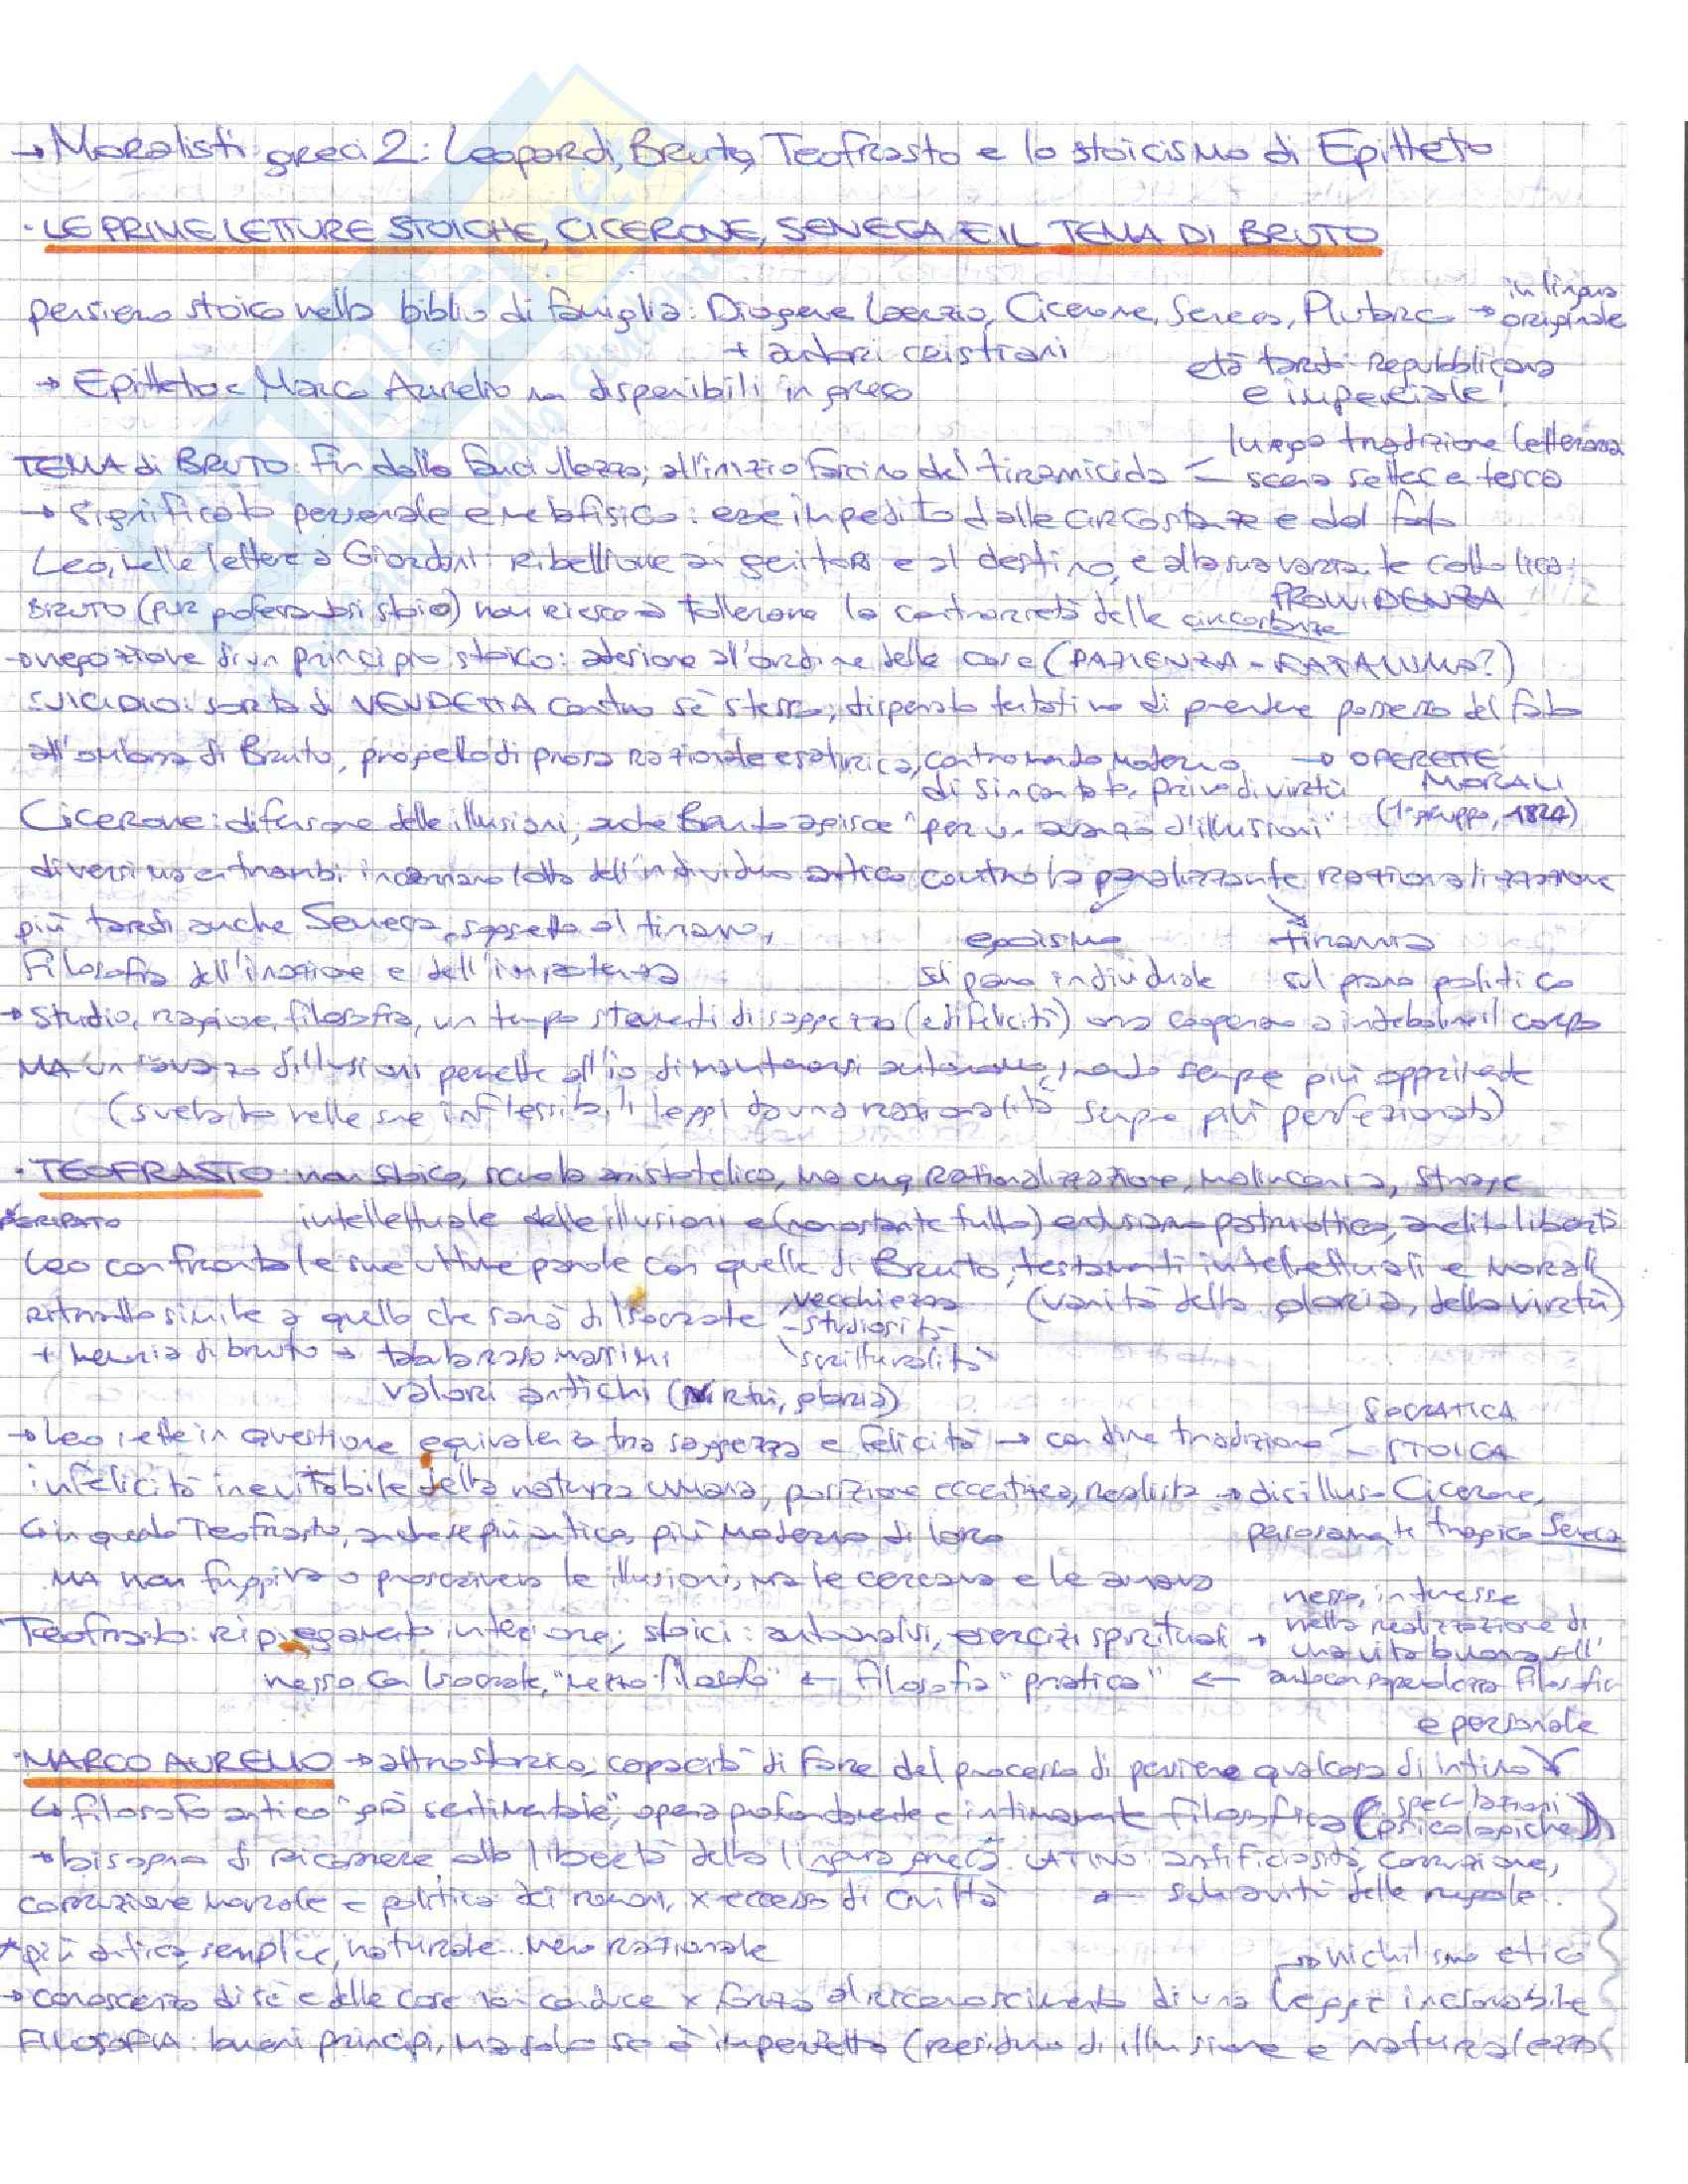 → Moralisti greci 2: Leopardi, Bruto, Teofrasto e lo stoicismo di Epitteto
· LE PRIME LETTURE STOICHE, CICERONE, SENECA E IL TEMA DI BRUTO
pensiero stoico nella biblio di famiglia: Diogene Laerzio, Cicerone, Seneca, Plutarco → in lingua originale
+ autori cristiani
età tardo-repubblicana e imperiale!
→ Epitteto e Marco Aurelio disponibili in greco
TEMA di BRUTO: fin dalla fanciullezza; all'inizio fascino del tirannicida < lunga tradizione letteraria
scena settecentesca
→ significato personale e metafisico: eroe impedito dalle circostanze e dal fato
Leo, nelle lettere a Giordani: ribellione ai genitori e al destino, e alla sua variante cattolica: PROVVIDENZA
BRUTO (pur professandosi stoico) non riesce a tollerare la contrarietà delle circostanze
→ negazione di un principio stoico: adesione all'ordine delle cose (PAZIENZA - FATALISMO?)
SUICIDIO: sorta di VENDETTA contro sè stesso; disperato tentativo di prendere possesso del fato
all'ombra di Bruto, progetto di prosa razionale e satirica, contro mondo moderno → OPERETTE MORALI
disincantato, privo di virtù (1° gruppo, 1824)
Cicerone: difensore delle illusioni; anche Bruto agisce "per un avanzo d'illusioni"
diversi ma entrambi incarnano lotta dell'individuo antico contro la paralizzante razionalizzazione
più tardi anche Seneca, soggetto al tiranno,
egoismo tirannia
filosofia dell'inazione e dell'impotenza
sul piano individuale sul piano politico
→ studio, ragione, filosofia, un tempo strumenti di saggezza (e di felicità) ora cooperano a indebolire il corpo
MA un avanzo d'illusioni permette all'io di mantenersi autonomo, mondo sempre più opprimente
(svelato nelle sue inflessibili leggi da una razionalità sempre più perfezionata)
· TEOFRASTO: non stoico, scuola aristotelica, ma cmq razionalizzazione, malinconia, strage
PERIPATO intellettuale delle illusioni e (nonostante tutto) entusiasmo patriottico, anelito libertà
Leo confronta le sue ultime parole con quelle di Bruto, testamenti intellettuali e morali
(vanità della gloria, della virtù)
ritratto simile a quello che sarà di Isocrate vecchiezza
- studiosità -
"scritturalità"
+ memoria di bruto →
valori antichi (virtù, gloria)
→ Leo mette in questione equivalenza tra saggezza e felicità → cardine tradizione < SOCRATICA
STOICA
infelicità inevitabile della natura umana, posizione eccentrica, realista → disilluso Cicerone,
personaggio tragico Seneca
↳ in questo Teofrasto, anche se più antico, più moderno di loro
MA non fuggiva o proscriveva le illusioni, ma le cercava e le amava
Teofrasto: ripiegamento interiore; stoici: autoanalisi, esercizi spirituali → nesso, interesse
nella realizzazione di
una vita buona all'
autoconsapevolezza filosofica
e personale
nesso con Isocrate, "mezzo filosofo" ← filosofia "pratica" ←
· MARCO AURELIO → capacità di fare del processo di pensiero qualcosa di intimo
↳ filosofo antico "già sentimentale", opera profondamente e intimamente filosofica (speculazioni psicologiche)
→ bisogno di ricorrere alla libertà della lingua greca*. LATINO: artificiosità, corruzione,
corruzione morale e politica dei romani, x eccesso di civiltà ← schiavitù delle regole..
*più antica, semplice, naturale.. meno razionale
→ nichilismo etico
→ conoscenza di sè e delle cose non conduce x forza al riconoscimento di una legge inesorabile
FILOSOFIA: buoni principi, ma solo se è imperfetta (residuo di illusione e naturalezza)